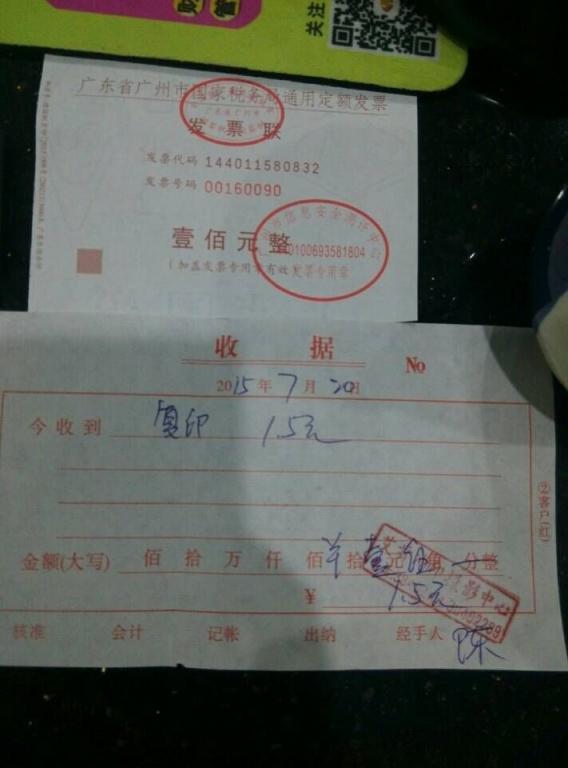 关注
广东省广州市国家税务局通用定额发票
发票联
发票代码 144011580832
发票号码 00160090
壹佰元整
(加盖发票专用章有效)
信息安全测评中心
0100693581804
发票专用章
收据
No
2015年7月20日
今收到 复印 1.5元
②客户(红)
金额(大写) 佰拾万仟佰拾壹元伍角 分整
¥ 1.5元
影中心
核准 会计 记帐 出纳 经手人 陈